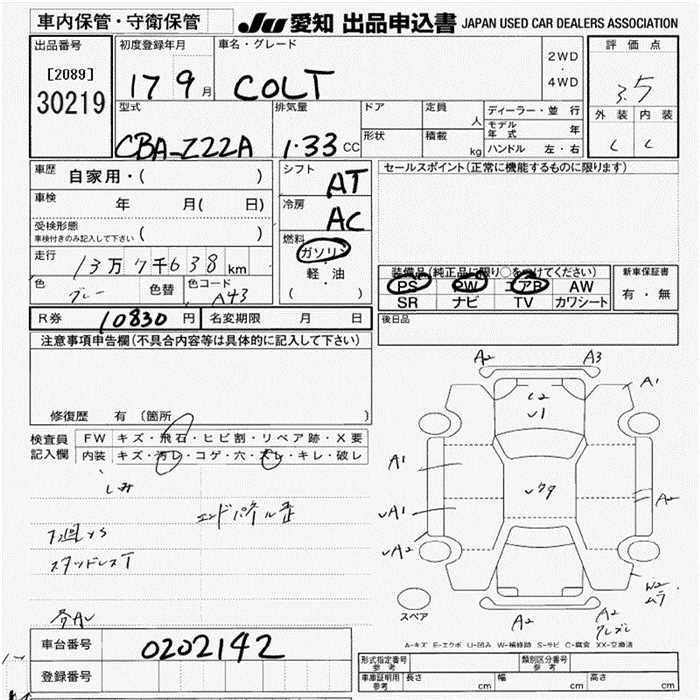 車内保管・守衛保管 JU 愛知 出品申込書 JAPAN USED CAR DEALERS ASSOCIATION
出品番号 初度登録年月 車名・グレード 2WD・4WD 評価点
[2089]
30219 17 9月 COLT 3.5
外装 内装
C C
型式 排気量 ドア 定員 人 ディーラー・並行
モデル年式 年
形状 積載 kg ハンドル 左・右
CBA-Z22A 1.33 CC
車歴 自家用・( ) シフト AT セールスポイント(正常に機能するものに限ります)
車検 年 月( 日) 冷房 AC
受検形態
車検付きのみ記入して下さい ( ) 燃料 ガソリン・軽油 ( )
走行 13万7千638km
装備品(純正品に限り○をつけてください) 新車保証書
PS PW エアB AW 有・無
SR ナビ TV カワシート
色 グレー 色替 色コード A43
R券 10830円 名変期限 月 日 後日品
注意事項申告欄(不具合内容等は具体的に記入して下さい)
修復歴 有(箇所 )
検査員記入欄 FW キズ・飛石・ヒビ割・リペア跡・X要
内装 キズ・汚レ・コゲ・穴・スレ・キレ・破レ
しみ
エンドパネル歪
スタッドレスT
A2 A3
A1
A1
A1
A2
A2
W2
ムラ
A2
A2
スペア
A-キズ E-エクボ U-凹み W-補修跡 S-サビ C-腐食 XX-交換済
車台番号 0202142
登録番号
形式指定番号 参考 類別区分番号 参考
車庫証明用 参考 長さ cm 幅 cm 高さ cm